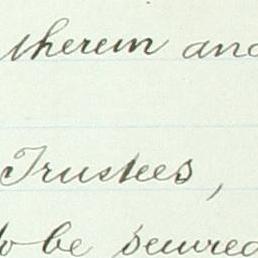 therein and
Trustees,
to be secured